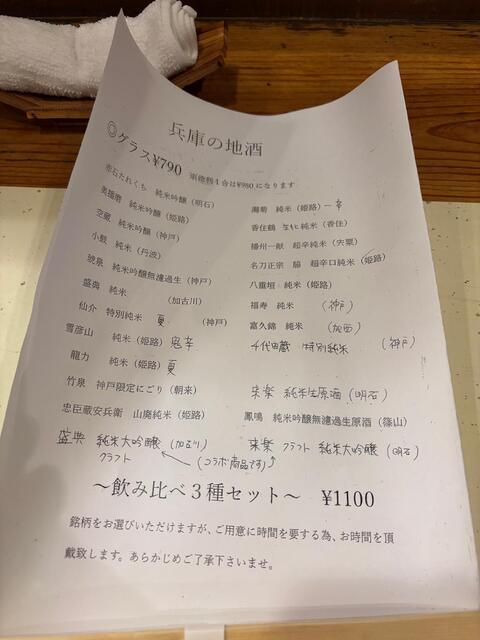 兵庫の地酒
◎グラス¥790 1合は¥980になります
明石たれくち 純米吟醸（明石）
奥播磨 純米吟醸（姫路）
空蔵 純米吟醸（神戸）
小鼓 純米（丹波）
琥泉 純米吟醸無濾過生（神戸）
盛典 純米（加古川）
仙介 特別純米 夏（神戸）
雪彦山 純米（姫路）辛
龍力 純米（姫路）夏
竹泉 神戸限定にごり（朝来）
忠臣蔵安兵衛 山廃純米（姫路）
盛典 純米大吟醸（加古川）
クラフト
灘菊 純米（姫路）辛
香住鶴 生酛純米（香住）
播州一献 超辛純米（宍粟）
名刀正宗 脇 超辛口純米（姫路）
八重垣 純米（姫路）
福寿 純米（神戸）
富久錦 純米（加西）
千代田蔵 特別純米（神戸）
来楽 純米生原酒（明石）
鳳鳴 純米吟醸無濾過生原酒（篠山）
来楽 クラフト 純米大吟醸（明石）
（コラボ商品です）
～飲み比べ３種セット～ ¥1100
銘柄をお選びいただけますが、ご用意に時間を要する為、お時間を頂
戴致します。あらかじめご了承下さいませ。